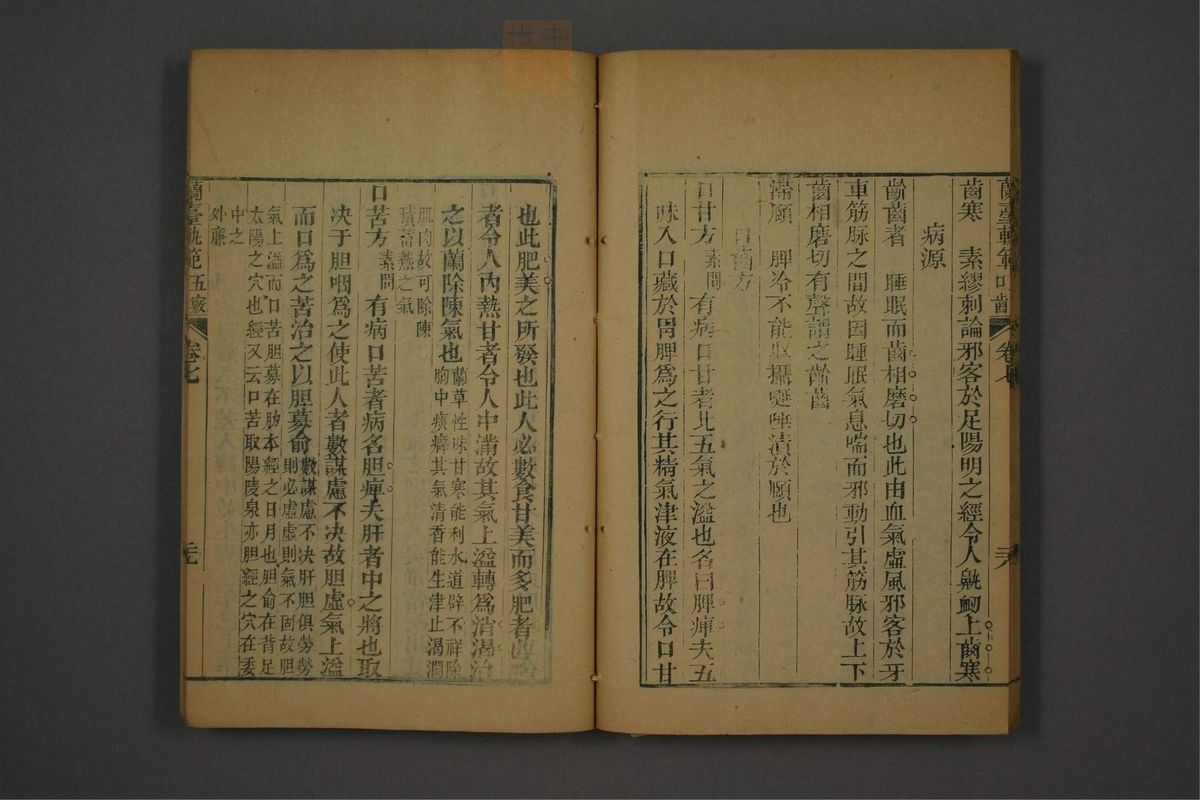 蘭臺軌範口齒 卷七
齒寒 素繆刺論邪客於足陽明之經令人鼽衂上齒寒
病源
齘齒者 睡眠而齒相磨切也此由血氣虛風邪客於牙
車筋脉之間故因睡眠氣息喘而邪動引其筋脉故上下
齒相磨切有聲謂之齘齒
滯頤 脾冷不能收攝唾漬於頤也
口齒方
口甘方 素問 有病口甘者此五氣之溢也名曰脾癉夫五
味入口藏於胃脾爲之行其精氣津液在脾故令口甘
也此肥美之所發也此人必數食甘美而多肥者
者令人內熱甘者令人中滿故其氣上溢轉爲消渴治
之以蘭除陳氣也 蘭草性味甘寒能利水道辟不祥除
胸中痰癖其氣清香能生津止渴潤
肌肉故可除陳
積蓄熱之氣
口苦方 素問 有病口苦者病名胆癉夫肝者中之將也取
決于胆咽爲之使此人者數謀慮不決故胆虛氣上溢
而口爲之苦治之以胆募俞 數謀慮不決肝胆俱勞勞
則必虛虛則氣不固故胆
氣上溢而口苦胆募在肋本經之日月也胆俞在背足
太陽之穴也經又云口苦取陽陵泉亦胆經之穴在委
中之
外廉
蘭臺軌範 卷七